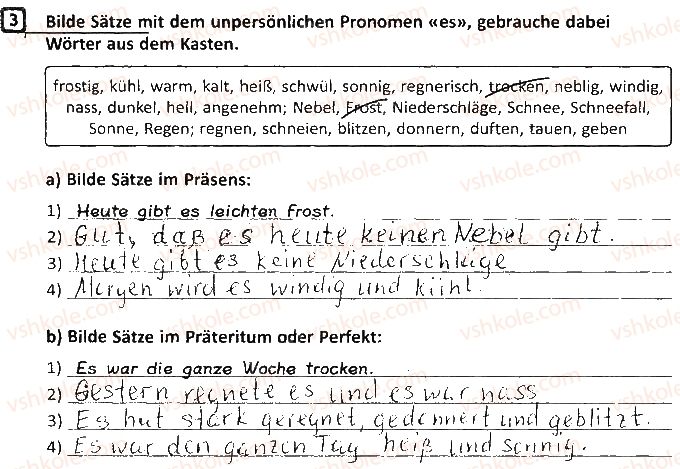 3 Bilde Sätze mit dem unpersönlichen Pronomen «es», gebrauche dabei
Wörter aus dem Kasten.
frostig, kühl, warm, kalt, heiß, schwül, sonnig, regnerisch, trocken, neblig, windig,
nass, dunkel, hell, angenehm; Nebel, Frost, Niederschläge, Schnee, Schneefall,
Sonne, Regen; regnen, schneien, blitzen, donnern, duften, tauen, geben
a) Bilde Sätze im Präsens:
1) Heute gibt es leichten Frost.
2) Gut, daß es heute keinen Nebel gibt.
3) Heute gibt es keine Niederschläge
4) Morgen wird es windig und kühl.
b) Bilde Sätze im Präteritum oder Perfekt:
1) Es war die ganze Woche trocken.
2) Gestern regnete es und es war nass
3) Es hat stark geregnet, gedonnert und geblitzt.
4) Es war den ganzen Tag heiß und sonnig.